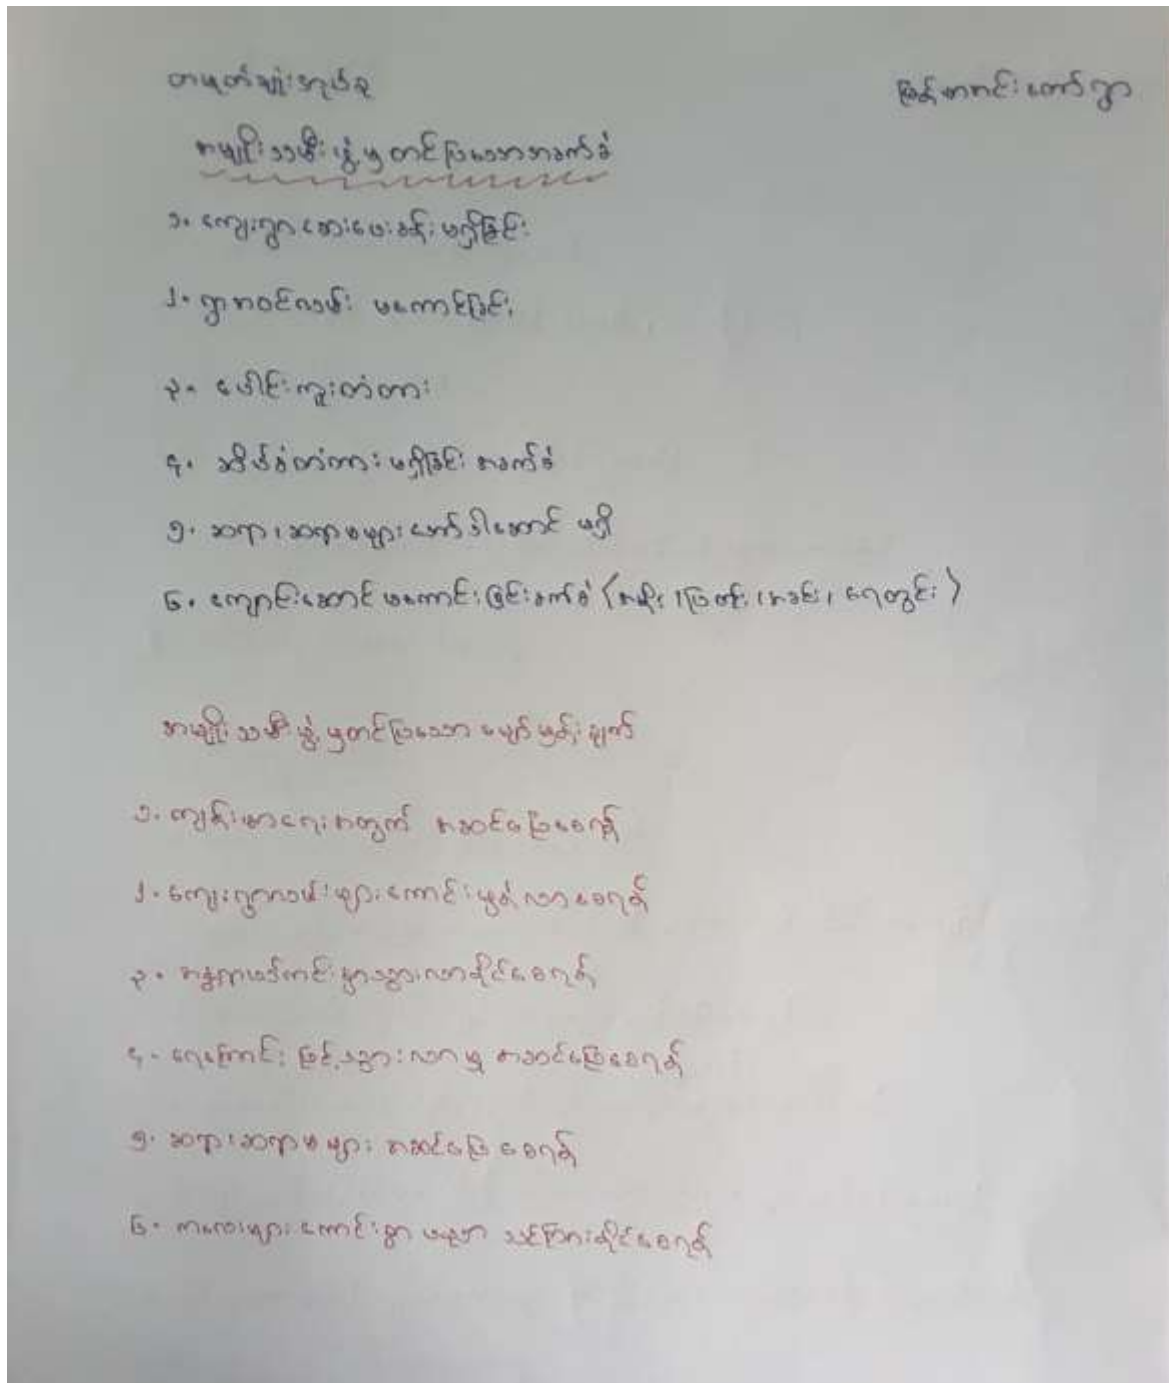 တမုတ်ချုံးအုပ်စု ဖြန့်မာကင်းတော်ရွာ
အမျိုးသမီးဖွဲ့မှတင်ပြသောအခက်ခဲ
၁. ကျေးရွာဆေးပေးခန်းမရှိခြင်း
၂. ရွာအဝင်လမ်း မကောင်းခြင်း
၃. ပေါင်းကူးတံတား
၄. ဆိပ်ခံတံတားမရှိခြင်းအခက်ခဲ
၅. ဆရာ၊ဆရာမများအော်ဒါဆောင် မရှိ
၆. ကျောင်းဆောင်မကောင်းခြင်းခက်ခဲ (အမိုး၊ပြတင်း၊အခင်း၊ ရေတွင်း)
အမျိုးသမီးဖွဲ့မှတင်ပြသော မျှော်မှန်းချက်
၁. ကျန်းမာရေးအတွက် အဆင်ပြေစေရန်
၂. ကျေးရွာလမ်းများကောင်းမွန်လာစေရန်
၃. အန္တရာယ်ကင်းစွာသွားလာနိုင်စေရန်
၄. ရေကြောင်းဖြင့်သွားလာမှု အဆင်ပြေစေရန်
၅. ဆရာ၊ဆရာမများ အဆင်ပြေစေရန်
၆. ကလေးများကောင်းစွာ ပညာ သင်ကြားနိုင်စေရန်